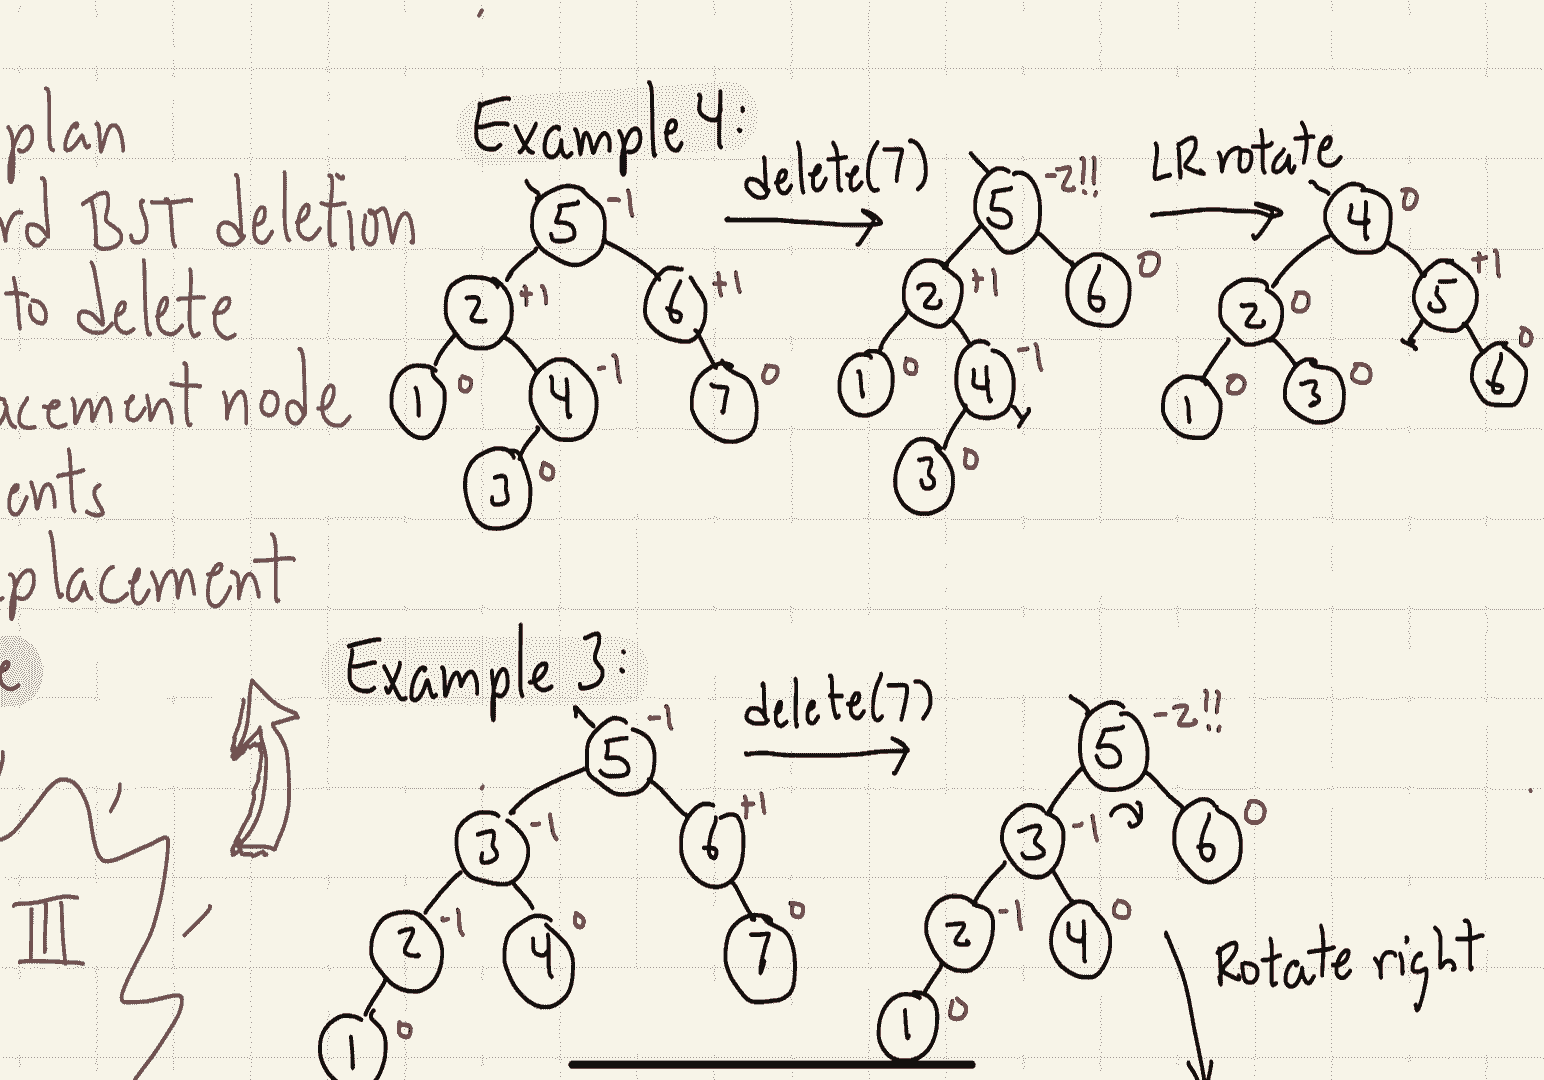 plan
rd BST deletion
to delete
acement node
ents
placement
e
III
Example 4:
5 -1
2 +1 6 +1
1 0 4 -1 7 0
3 0
delete(7)
5 -2!!
2 +1 6 0
1 0 4 -1
3 0
LR rotate
4 0
2 0 5 +1
1 0 3 0 6 0
Example 3:
5 -1
3 -1 6 +1
2 -1 4 0 7 0
1 0
delete(7)
5 -2!!
3 -1 6 0
2 -1 4 0
1 0
Rotate right